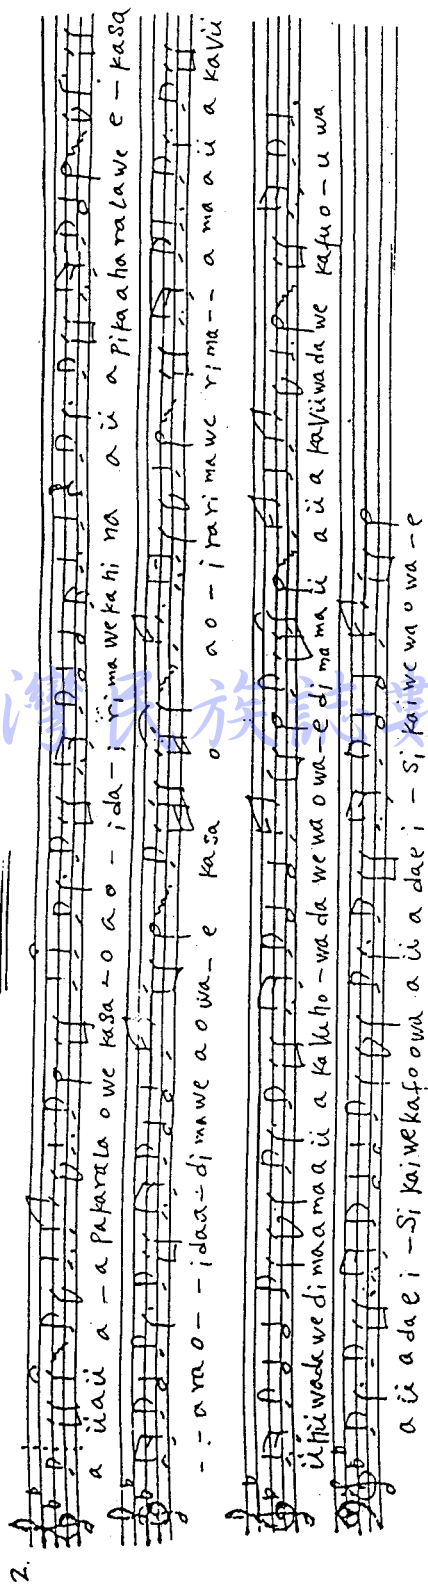 2.
a üaü a - a pakarala owe kasa - o a o - ida - i rimawekahi na aü a pikaaharalawe e - kasa
- - ara o - - idaa - dimawe a owa - e kasa o ao - i rarimawe rima - - a ma aü a kavü
ühüwadawedimaamaaü a kaluho - wada wewaowa - e dimamaü aüa kavüwadawe kafuo - u wa
a ü adaei - Si kaiwekafoowa aü a daei - Si kaiwewaowa - e
灣民族誌